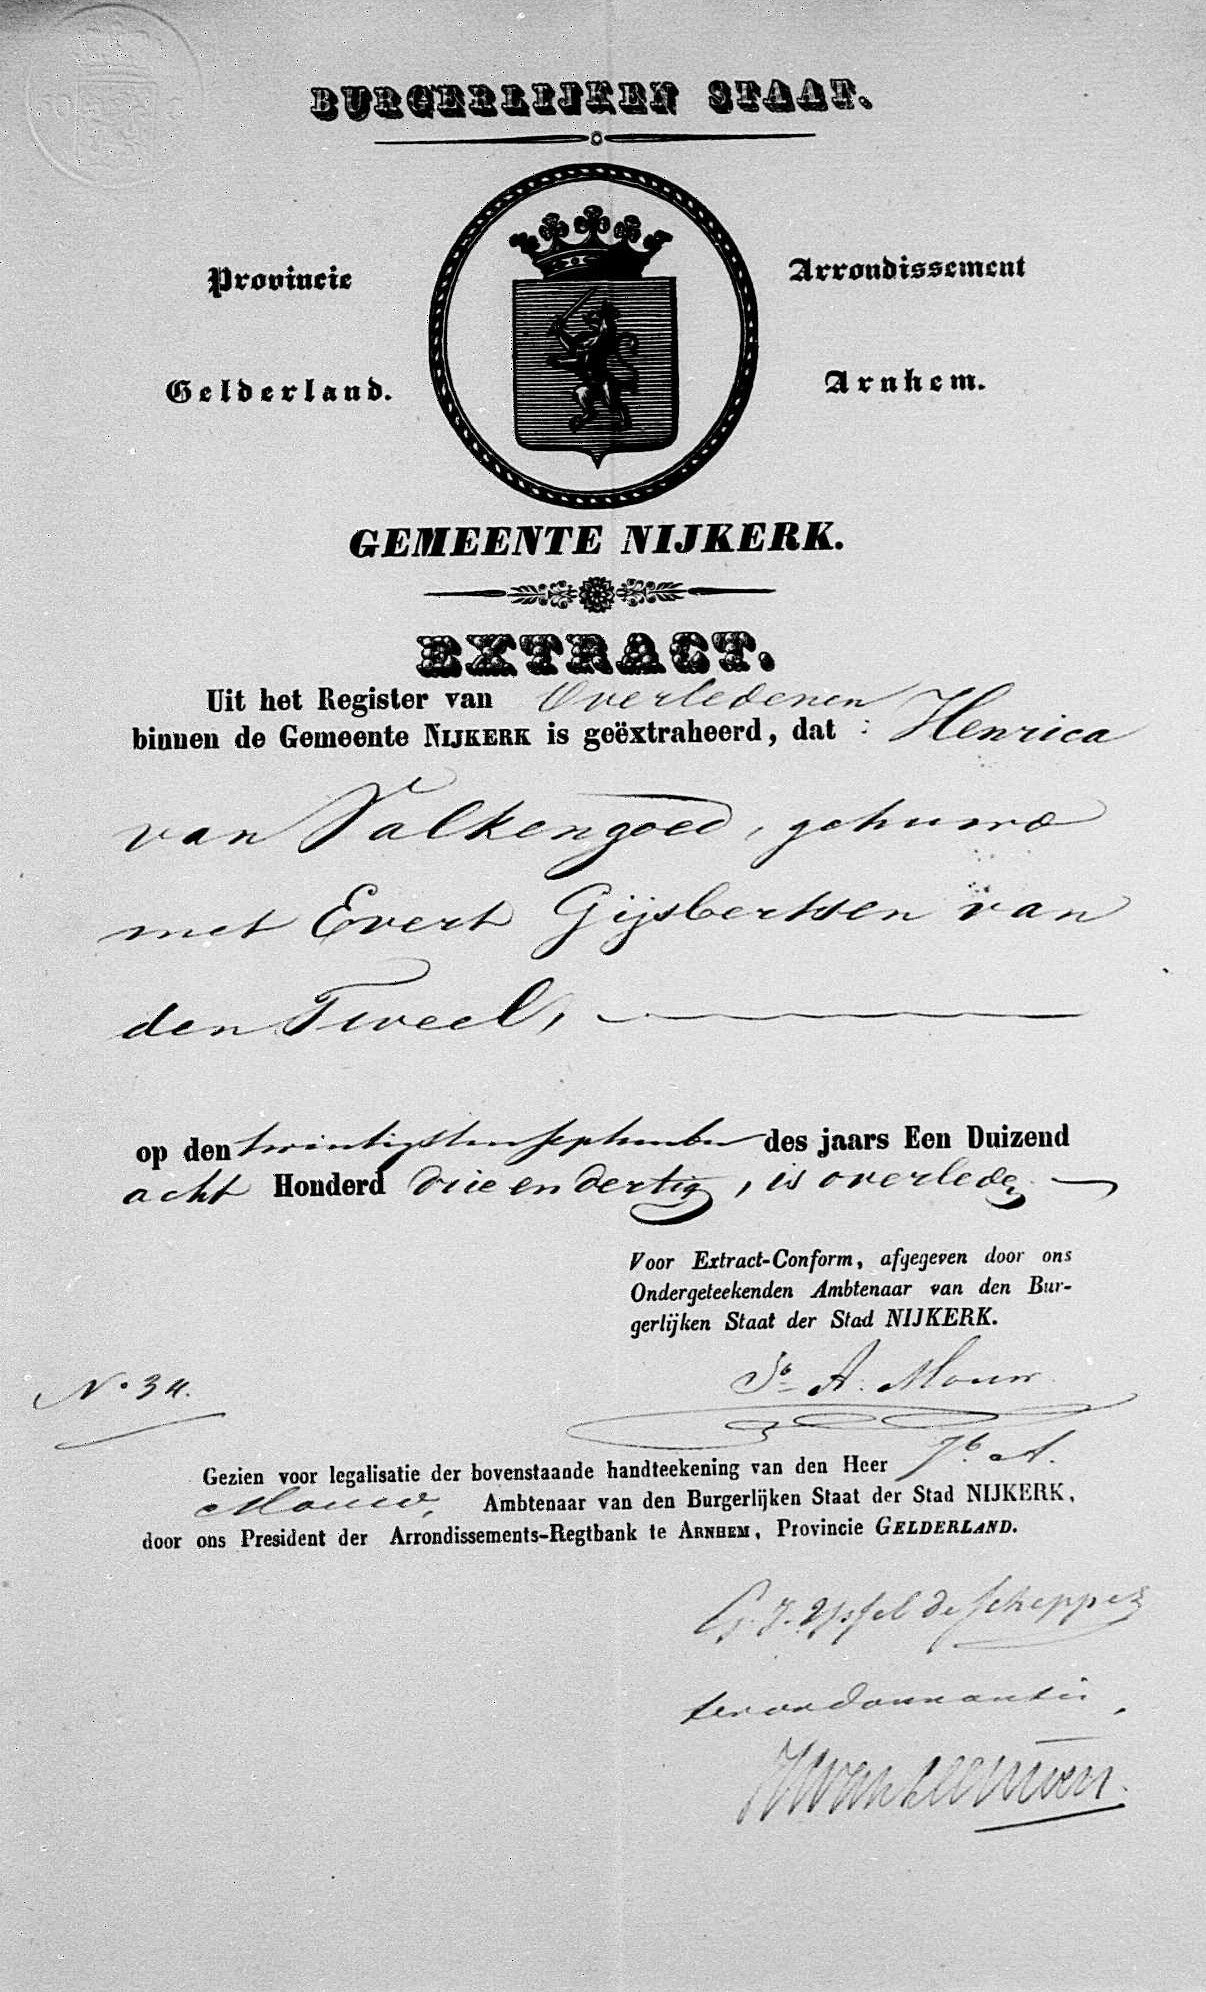 BURGERLIJKEN STAAT.
Provincie
Gelderland.
Arrondissement
Arnhem.
GEMEENTE NIJKERK.
EXTRACT.
Uit het Register van Overledenen
binnen de Gemeente NIJKERK is geëxtraheerd, dat : Henrica
van Valkengoed, gehuwd
met Evert Gijsbertsen van
den Tweel,
op den twintigsten september des jaars Een Duizend
acht Honderd drie en dertig, is overleden
Voor Extract-Conform, afgegeven door ons
Ondergeteekenden Ambtenaar van den Bur-
gerlijken Staat der Stad NIJKERK.
Jb A. Mouw.
No 34.
Gezien voor legalisatie der bovenstaande handteekening van den Heer Jb. A.
Mouw, Ambtenaar van den Burgerlijken Staat der Stad NIJKERK,
door ons President der Arrondissements-Regtbank te ARNHEM, Provincie GELDERLAND.
IJssel de Schepper
ter ordonnantie,
van Leeuwen